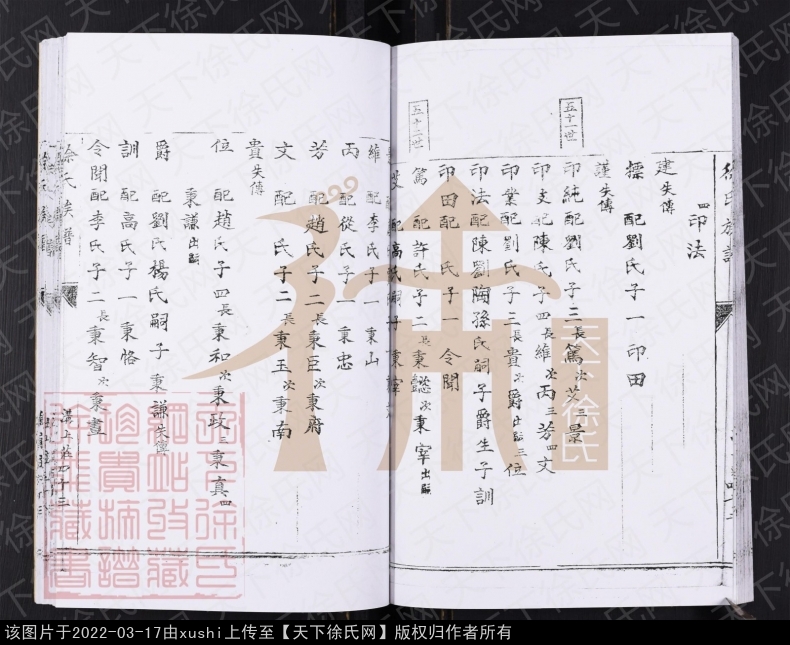 徐氏族譜
四印法
標 配劉氏子一印田
建失傳
謹失傳
五十一世
印純配劉氏子三長篤次芝三景
印支配陳氏子四長維次丙三芳四文
印業配劉氏子三長貴次爵出嗣三位
印法配陳劉陶孫氏嗣子爵生子訓
印田配 氏子一令聞
五十二世
篤 配許氏子二長秉懿次秉宰出嗣
芝 配高氏嗣子秉宰
維 配李氏子一秉山
丙 配從氏子一秉忠
芳 配趙氏子二長秉臣次秉府
文 配 氏子二長秉玉次秉南
貴失傳
位 配趙氏子四長秉和次秉政三秉真四
秉謙出嗣
爵 配劉氏楊氏嗣子秉謙失傳
訓 配高氏子一秉恪
令聞配李氏子二長秉智次秉晝
徐氏族譜
天下徐氏
天下徐氏网
该图片于2022-03-17由xushi上传至【天下徐氏网】版权归作者所有